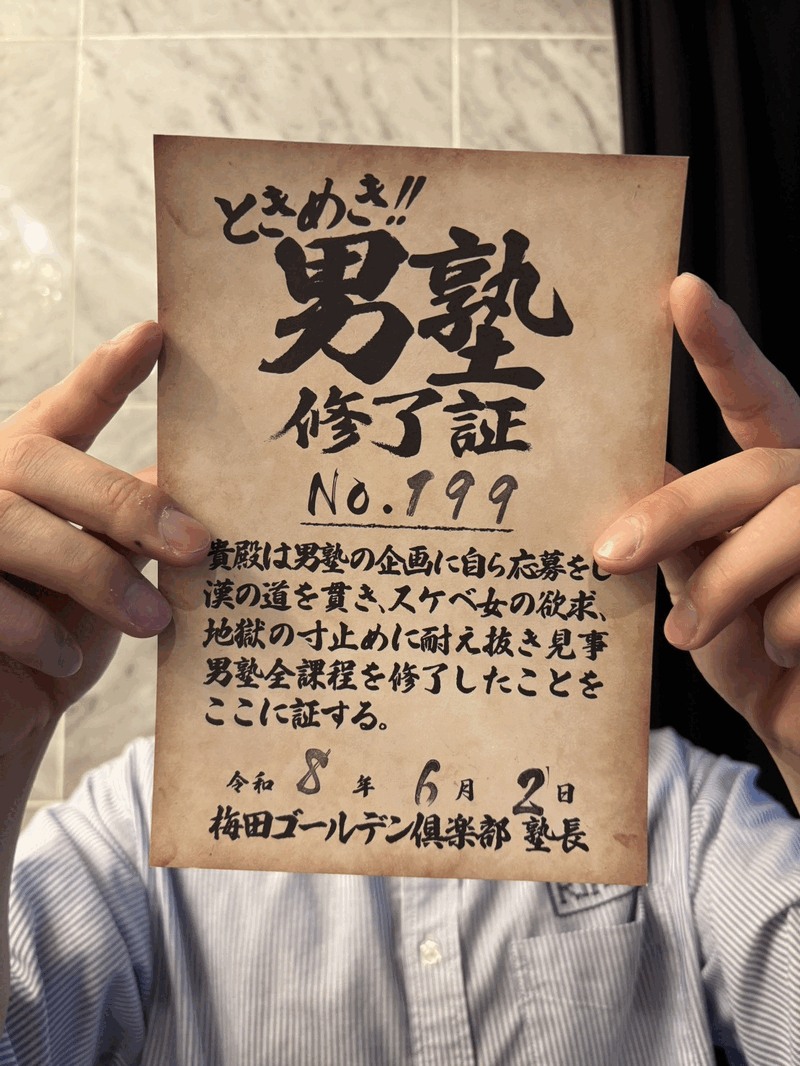 ときめき!!
男塾
修了証
No.199
貴殿は男塾の企画に自ら応募をし
漢の道を貫き、スケベ女の欲求、
地獄の寸止めに耐え抜き見事
男塾全課程を修了したことを
ここに証する。
令和 8 年 6 月 2 日
梅田ゴールデン倶楽部 塾長